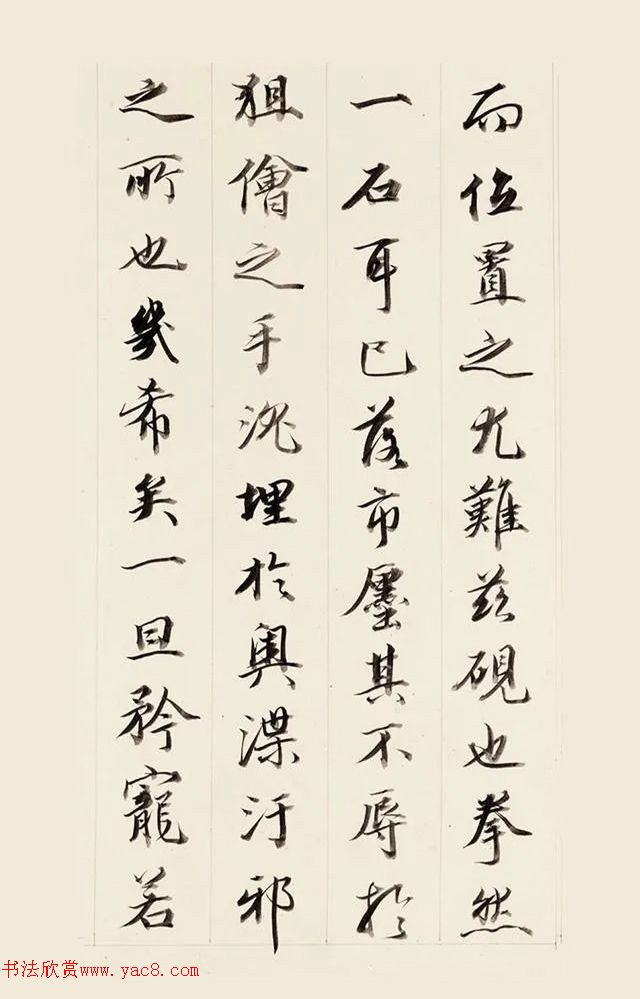 而位置之尤難茲硯也拳然
一石耳已落市廛其不辱於
狙儈之手沈埋於輿渫汙邪
之所也幾希矣一旦矜寵若
书法欣赏www.yac8.com